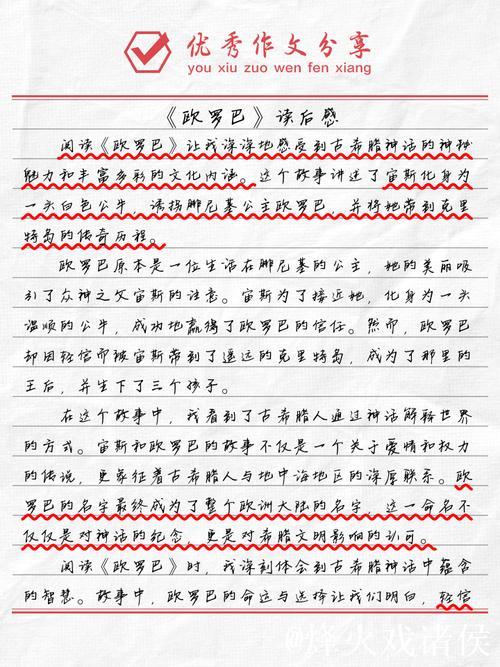 优秀作文分享
you xiu zuo wen fen xiang
《欧罗巴》读后感
阅读《欧罗巴》让我深深地感受到古希腊神话的神秘
魅力和丰富多彩的文化内涵。这个故事讲述了宙斯化身为
一头白色公牛,诱拐腓尼基公主欧罗巴,并将她带到克里
特岛的传奇历程。
欧罗巴原本是一位生活在腓尼基的公主,她的美丽吸
引了众神之父宙斯的注意。宙斯为了接近她,化身为一头
温顺的公牛,成功地赢得了欧罗巴的信任。然而,欧罗巴
却因轻信而被宙斯带到了遥远的克里特岛,成为了那里的
王后,并生下了三个孩子。
在这个故事中,我看到了古希腊人通过神话解释世界
的方式。宙斯和欧罗巴的故事不仅是一个关于爱情和权力
的传说,更象征着古希腊人与地中海地区的深厚联系。欧
罗巴的名字最终成为了整个欧洲大陆的名字,这一命名不
仅仅是对神话的纪念,更是对希腊文明影响的认可。
阅读《欧罗巴》时,我深刻体会到古希腊神话中蕴含
的智慧。故事中,欧罗巴的命运与选择让我们明白,轻信
@烽火戏诸侯